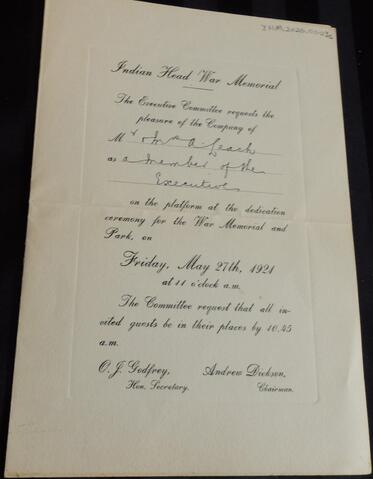 Indian Head War Memorial
The Executive Committee requests the
pleasure of the Company of
Mr & Mrs A. Leach
as a member of the
Executive
on the platform at the dedication
ceremony for the War Memorial and
Park, on
Friday, May 27th, 1921
at 11 o'clock a.m.
The Committee request that all in-
vited guests be in their places by 10.45
a.m.
O. J. Godfrey, Andrew Dickson,
Hon. Secretary. Chairman.